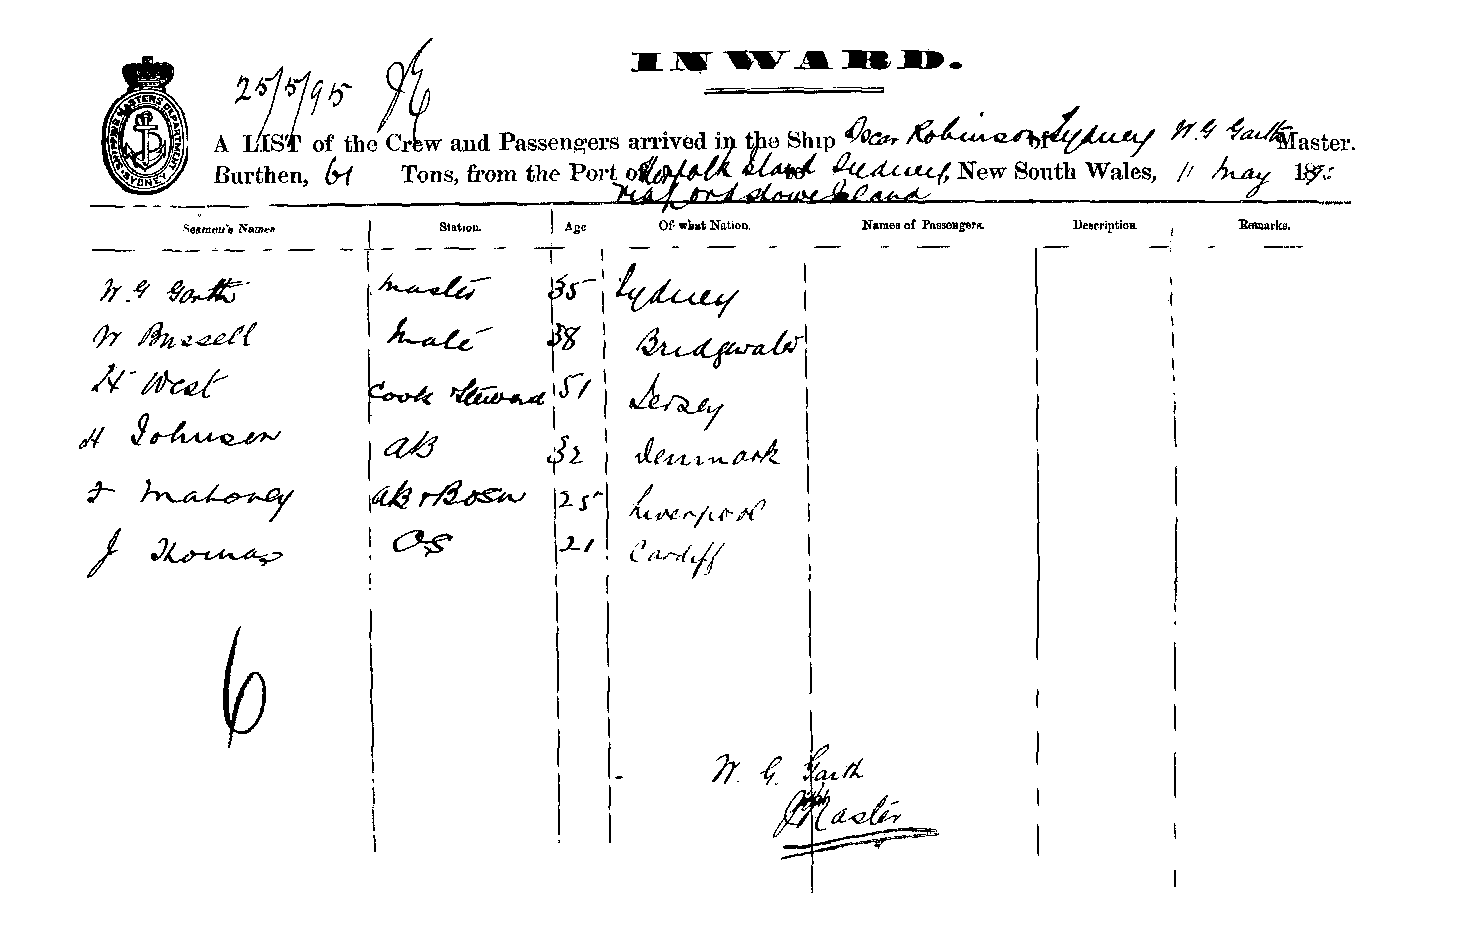 INWARD.
25/5/95
A LIST of the Crew and Passengers arrived in the Ship Oscar Robinson of Sydney W. G Garth Master.
Burthen, 61 Tons, from the Port of Norfolk Island to Sydney, New South Wales, 11 May 189
via Lord Howe Island
Seamen's Names Station. Age Of what Nation. Names of Passengers. Description Remarks.
W. G Garth Master 35 Sydney
W Bussell Mate 38 Bridgwater
H West Cook & Steward 51 Jersey
H Johnsen AB 32 Denmark
T Mahoney AB & Bosn 25 Liverpool
J Thomas OS 21 Cardiff
6
W. G. Garth
Master